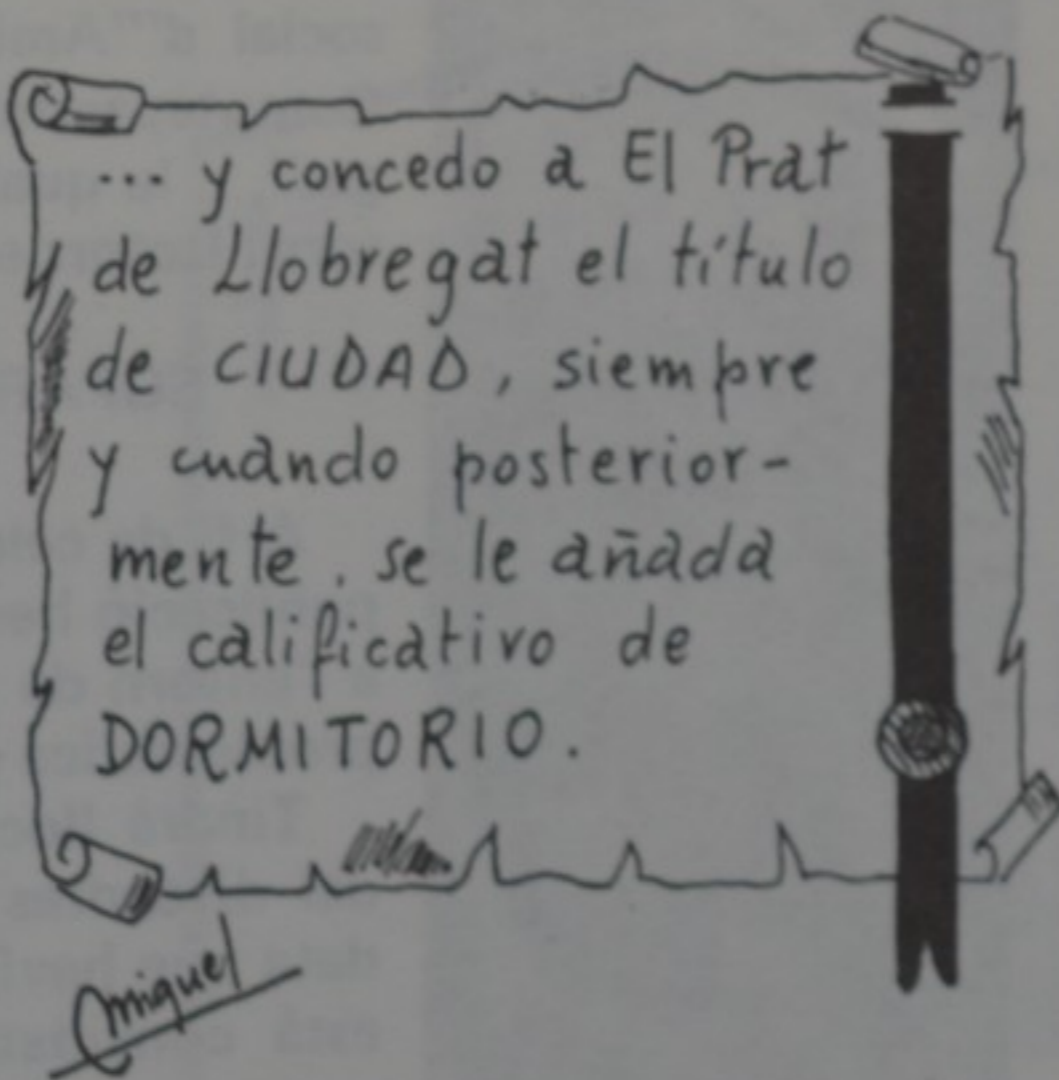 ... y concedo a El Prat
de Llobregat el título
de CIUDAD, siempre
y cuando posterior-
mente, se le añada
el calificativo de
DORMITORIO.
Miquel